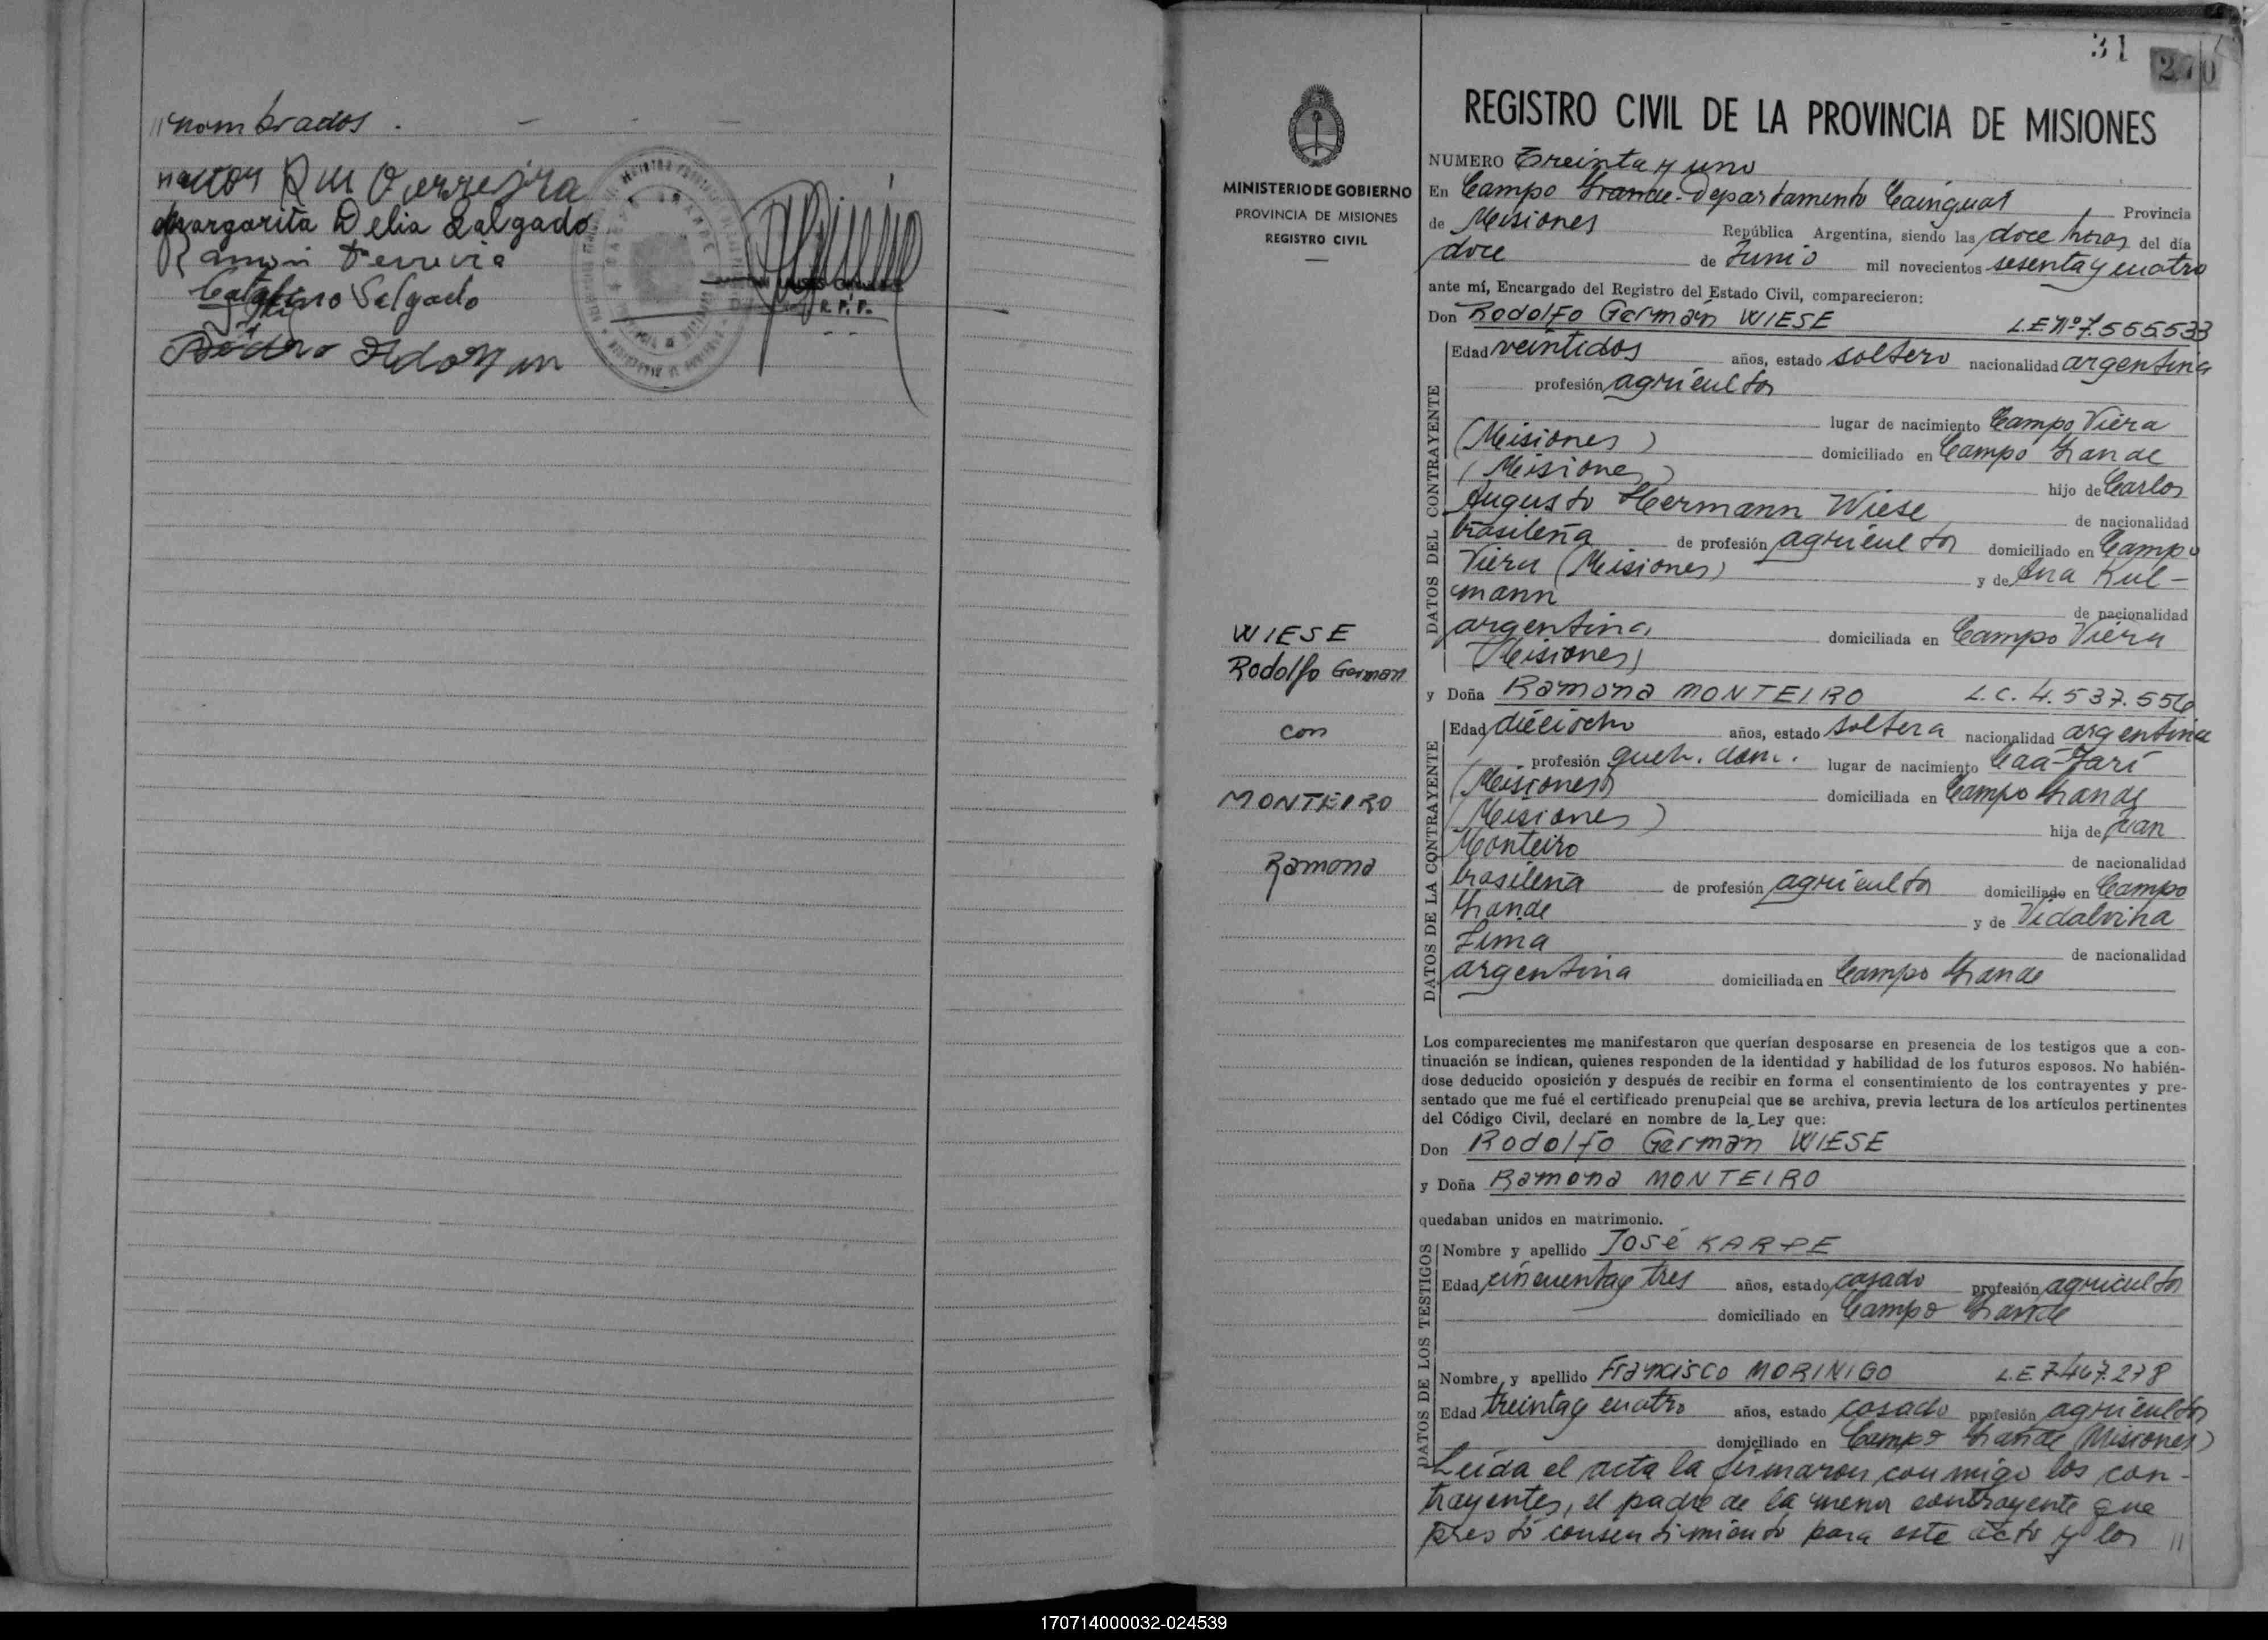 // nombrados . - - -
Margarita Delia Salgado
Ramón Ferreira
Catalino Salgado
R.P.P.
31
270
MINISTERIO DE GOBIERNO
PROVINCIA DE MISIONES
REGISTRO CIVIL
WIESE
Rodolfo German
con
MONTEIRO
Ramona
REGISTRO CIVIL DE LA PROVINCIA DE MISIONES
NUMERO Treinta y uno
En Campo Grande-Departamento Cainguás, Provincia
de Misiones República Argentina, siendo las doce horas del día
doce de Junio mil novecientos sesenta y cuatro
ante mí, Encargado del Registro del Estado Civil, comparecieron:
Don Rodolfo Germán WIESE L.E Nº 7.555533
DATOS DEL CONTRAYENTE
Edad veintidos años, estado soltero nacionalidad argentina
profesión agricultor
lugar de nacimiento Campo Viera
(Misiones) domiciliado en Campo Grande
(Misiones) hijo de Carlos
Augusto Hermann Wiese de nacionalidad
brasileña de profesión agricultor domiciliado en Campo
Viera (Misiones) y de Ana Kul-
mann de nacionalidad
argentina domiciliada en Campo Viera
(Misiones)
y Doña Ramona MONTEIRO L.C. 4.537.556
DATOS DE LA CONTRAYENTE
Edad dieciocho años, estado soltera nacionalidad argentina
profesión queh. dom. lugar de nacimiento Caá-Yarí
(Misiones) domiciliada en Campo Grande
(Misiones) hija de Juan
Monteiro de nacionalidad
brasileña de profesión agricultor domiciliado en Campo
Grande y de Vidalvina
Lima de nacionalidad
argentina domiciliada en Campo Grande
Los comparecientes me manifestaron que querían desposarse en presencia de los testigos que a con-
tinuación se indican, quienes responden de la identidad y habilidad de los futuros esposos. No habién-
dose deducido oposición y después de recibir en forma el consentimiento de los contrayentes y pre-
sentado que me fué el certificado prenupcial que se archiva, previa lectura de los artículos pertinentes
del Código Civil, declaré en nombre de la Ley que:
Don Rodolfo Germán WIESE
y Doña Ramona MONTEIRO
quedaban unidos en matrimonio.
DATOS DE LOS TESTIGOS
Nombre y apellido José KARPE
Edad cincuenta y tres años, estado casado profesión agricultor
domiciliado en Campo Grande
Nombre y apellido Francisco MORINIGO L.E 7.467.278
Edad treinta y cuatro años, estado casado profesión agricultor
domiciliado en Campo Grande (Misiones)
Leída el acta la firmaron conmigo los con-
trayentes, el padre de la menor contrayente que
prestó consentimiento para este acto y los //
170714000032-024539